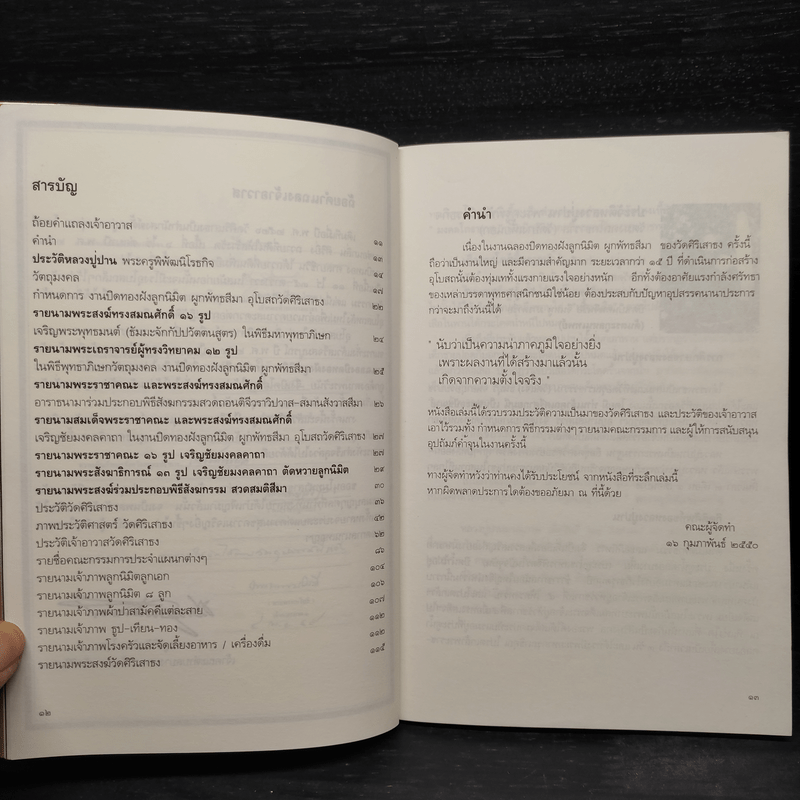 สารบัญ
ถ้อยคำแถลงเจ้าอาวาส ๑๑
คำนำ ๑๓
ประวัติหลวงปู่ปาน พระครูพิพัฒนิโรธกิจ ๑๔
วัตถุมงคล ๑๗
กำหนดการ งานปิดทองฝังลูกนิมิต ผูกพัทธสีมา อุโบสถวัดศิริเสาธง ๒๒
รายนามพระสงฆ์ทรงสมณศักดิ์ ๑๖ รูป
เจริญพระพุทธมนต์ (ธัมมะจักกัปปวัตตนสูตร) ในพิธีมหาพุทธาภิเษก ๒๔
รายนามพระเถราจารย์ผู้ทรงวิทยาคม ๑๒ รูป
ในพิธีพุทธาภิเษกวัตถุมงคล งานปิดทองฝังลูกนิมิต ผูกพัทธสีมา ๒๕
รายนามพระราชาคณะ และพระสงฆ์ทรงสมณศักดิ์
อาราธนามาร่วมประกอบพิธีสังฆกรรมสวดถอนติจีวราวิปวาส-สมานสังวาสสีมา ๒๖
รายนามสมเด็จพระราชาคณะ และพระสงฆ์ทรงสมณศักดิ์
เจริญชัยมงคลคาถา ในงานปิดทองฝังลูกนิมิต ผูกพัทธสีมา อุโบสถวัดศิริเสาธง ๒๗
รายนามพระราชาคณะ ๑๖ รูป เจริญชัยมงคลคาถา ๒๗
รายนามพระสังฆาธิการณ์ ๑๓ รูป เจริญชัยมงคลคาถา ตัดหวายลูกนิมิต ๒๙
รายนามพระสงฆ์ร่วมประกอบพิธีสังฆกรรม สวดสมติสีมา ๓๐
ประวัติวัดศิริเสาธง ๓๖
ภาพประวัติศาสตร์ วัดศิริเสาธง ๔๒
ประวัติเจ้าอาวาสวัดศิริเสาธง ๖๒
รายชื่อคณะกรรมการประจำแผนกต่างๆ ๘๖
รายนามเจ้าภาพลูกนิมิตลูกเอก ๑๐๔
รายนามเจ้าภาพลูกนิมิต ๘ ลูก ๑๐๖
รายนามเจ้าภาพผ้าป่าสามัคคีแต่ละสาย ๑๐๗
รายนามเจ้าภาพ ธูป-เทียน-ทอง ๑๑๒
รายนามเจ้าภาพโรงครัวและจัดเลี้ยงอาหาร / เครื่องดื่ม ๑๑๒
รายนามพระสงฆ์วัดศิริเสาธง ๑๑๕
๑๒
คำนำ
เนื่องในงานฉลองปิดทองฝังลูกนิมิต ผูกพัทธสีมา ของวัดศิริเสาธง ครั้งนี้
ถือว่าเป็นงานใหญ่ และมีความสำคัญมาก ระยะเวลากว่า ๑๕ ปี ที่ดำเนินการก่อสร้าง
อุโบสถนั้นต้องทุ่มเททั้งแรงกายแรงใจอย่างหนัก อีกทั้งต้องอาศัยแรงกำลังศรัทธา
ของเหล่าบรรดาพุทธศาสนิกชนมิใช่น้อย ต้องประสบกับปัญหาอุปสรรคนานาประการ
กว่าจะมาถึงวันนี้ได้
" นับว่าเป็นความน่าภาคภูมิใจอย่างยิ่ง
เพราะผลงานที่ได้สร้างมาแล้วนั้น
เกิดจากความตั้งใจจริง "
หนังสือเล่มนี้ได้รวบรวมประวัติความเป็นมาของวัดศิริเสาธง และประวัติของเจ้าอาวาส
เอาไว้รวมทั้ง กำหนดการ พิธีกรรมต่างๆ รายนามคณะกรรมการ และผู้ให้การสนับสนุน
อุปถัมภ์ค้ำจุนในงานครั้งนี้
ทางผู้จัดทำหวังว่าท่านคงได้รับประโยชน์ จากหนังสือที่ระลึกเล่มนี้
หากผิดพลาดประการใดต้องขออภัยมา ณ ที่นี้ด้วย
คณะผู้จัดทำ
๑๖ กุมภาพันธ์ ๒๕๕๐
๑๓